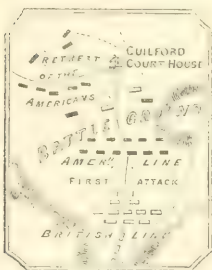 RETREAT
OF THE
AMERICANS
GUILFORD
COURT HOUSE
BATTLE GROUND
AMERN. LINE
FIRST ATTACK
BRITISH LINE